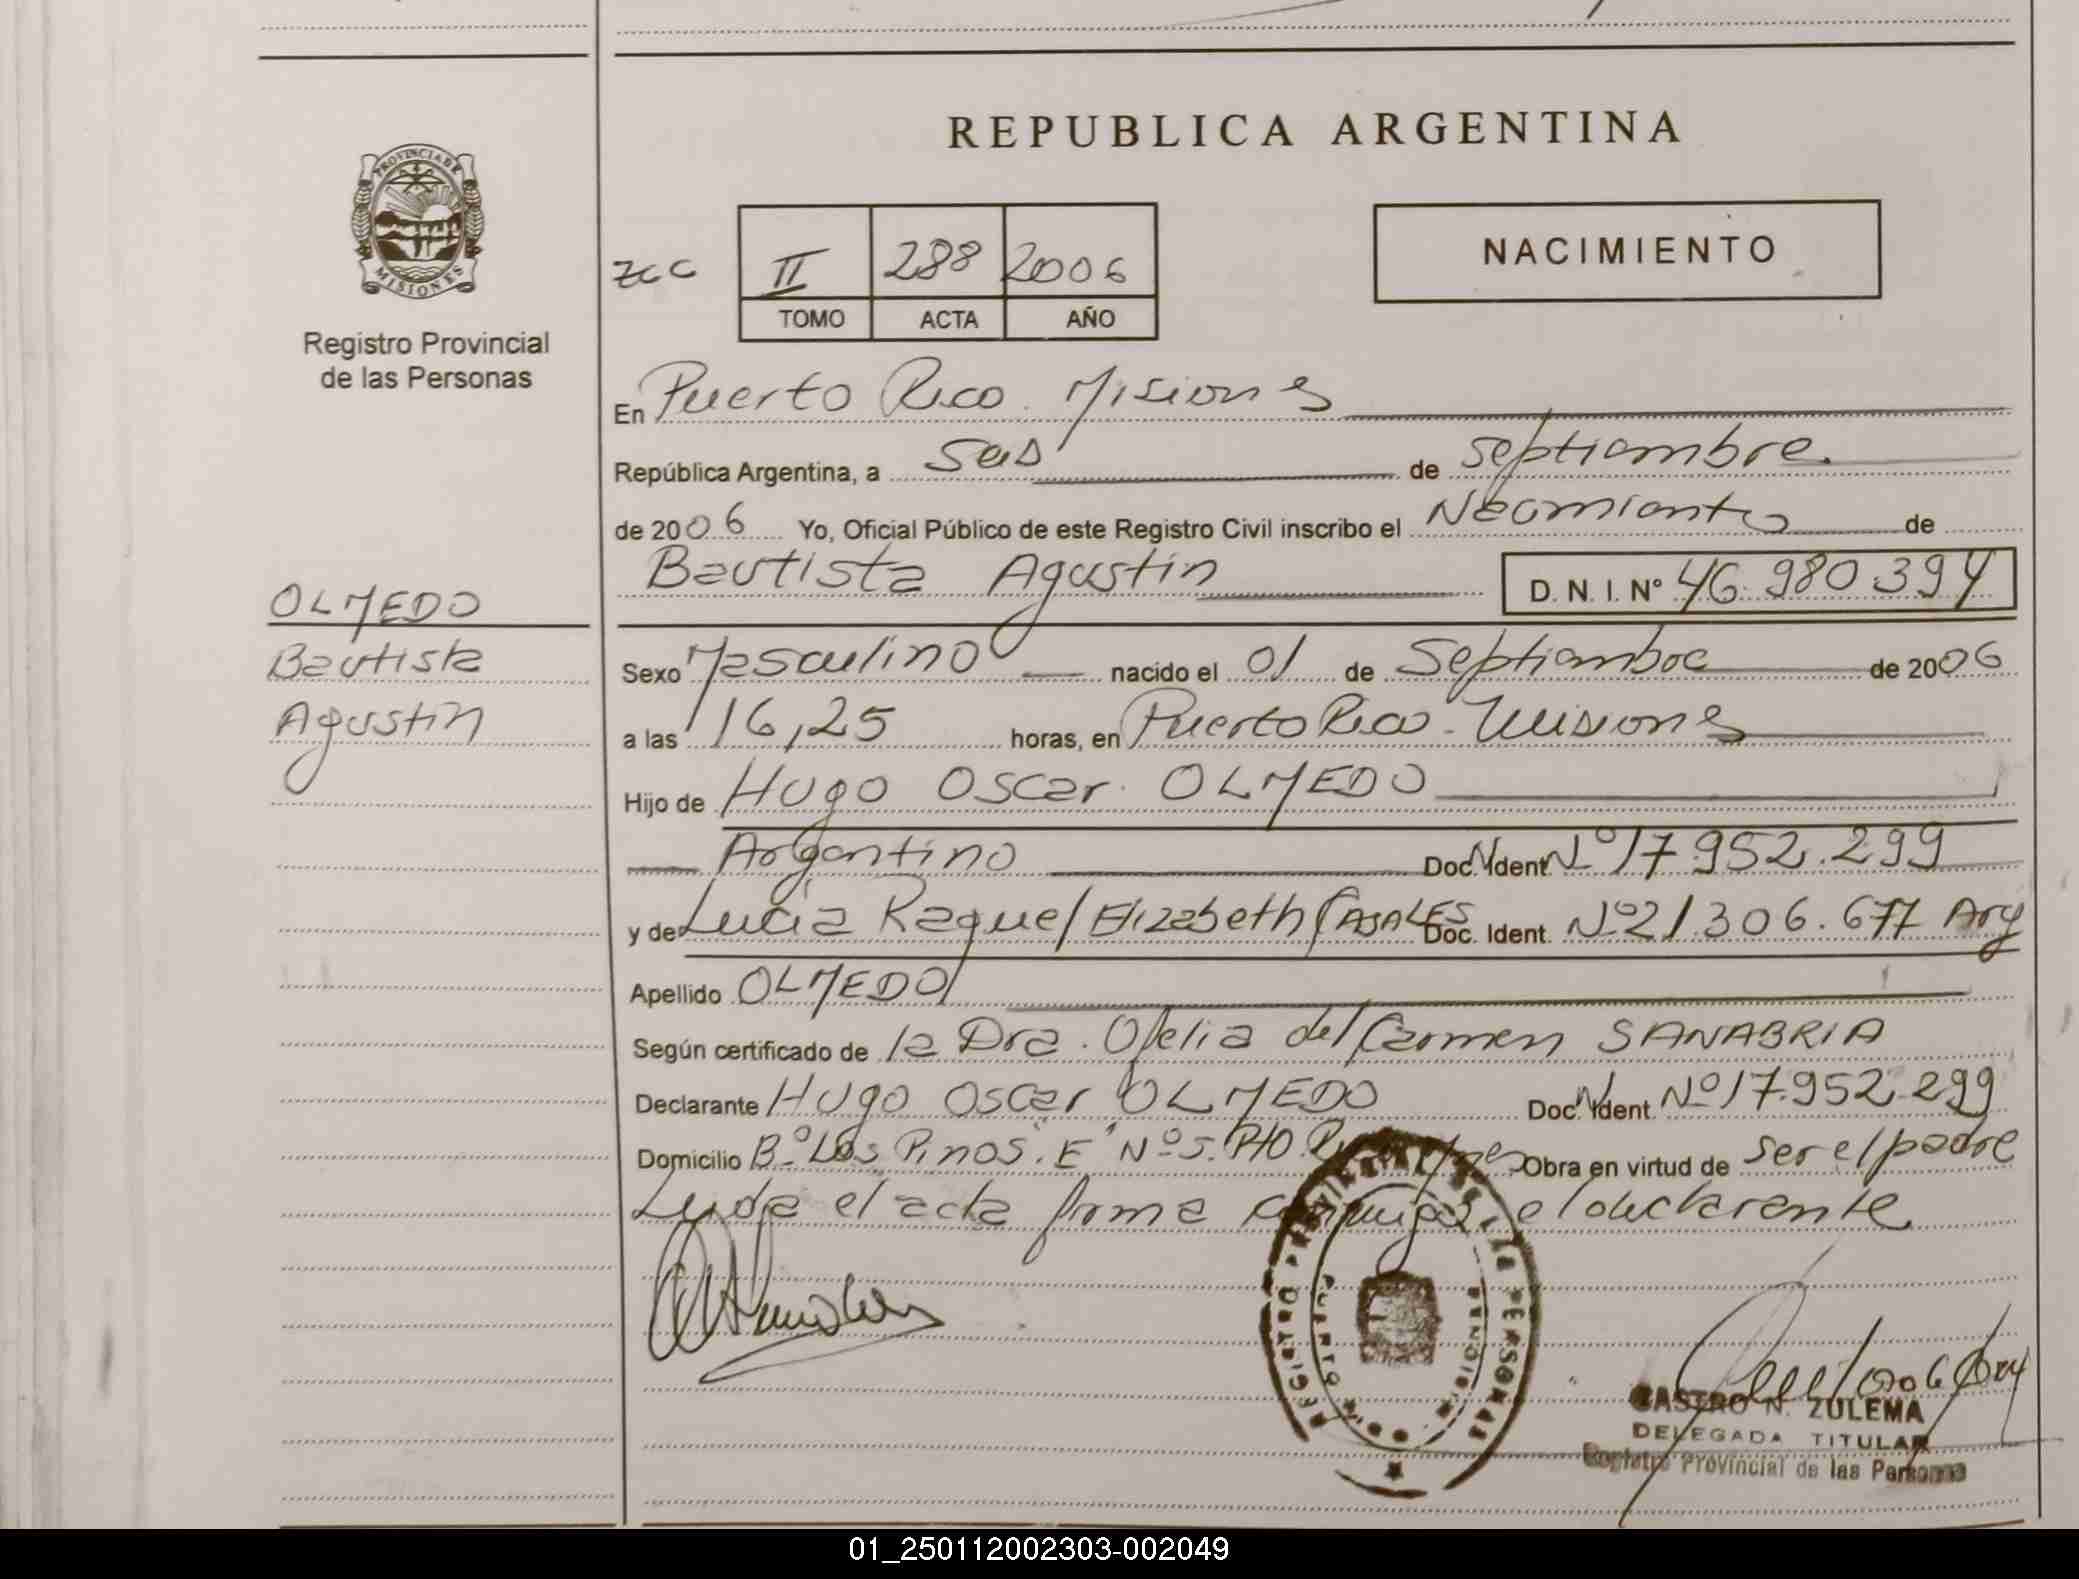 REPUBLICA ARGENTINA
PROVINCIA DE
MISIONES
Registro Provincial
de las Personas
zcc II 288 2006
TOMO ACTA AÑO
NACIMIENTO
En Puerto Rico. Misiones
República Argentina, a seis de septiembre.
de 2006 Yo, Oficial Público de este Registro Civil inscribo el Nacimiento de
Bautista Agustin D. N. I. Nº 46.980.394
OLMEDO
Bautista
Agustin
Sexo Masculino nacido el 01 de Septiembre de 2006
a las 16,25 horas, en Puerto Rico - Misiones
Hijo de Hugo Oscar OLMEDO
Argentino Doc. Ident. Nº 17.952.299
y de Lucia Raquel Elizabeth CASALES Doc. Ident. Nº 21.306.677 Arg
Apellido OLMEDO
Según certificado de la Dra. Ofelia del Carmen SANABRIA
Declarante Hugo Oscar OLMEDO Doc. Ident. Nº 17.952.299
Domicilio Bº Los Pinos "E" Nº 5. Pto. Obra en virtud de ser el padre
Leida el acta firma conmigo el declarante
REGISTRO PROVINCIAL DE LAS PERSONAS
PUERTO RICO
MISIONES
CASTRO N. ZULEMA
DELEGADA TITULAR
Registro Provincial de las Personas
01_250112002303-002049